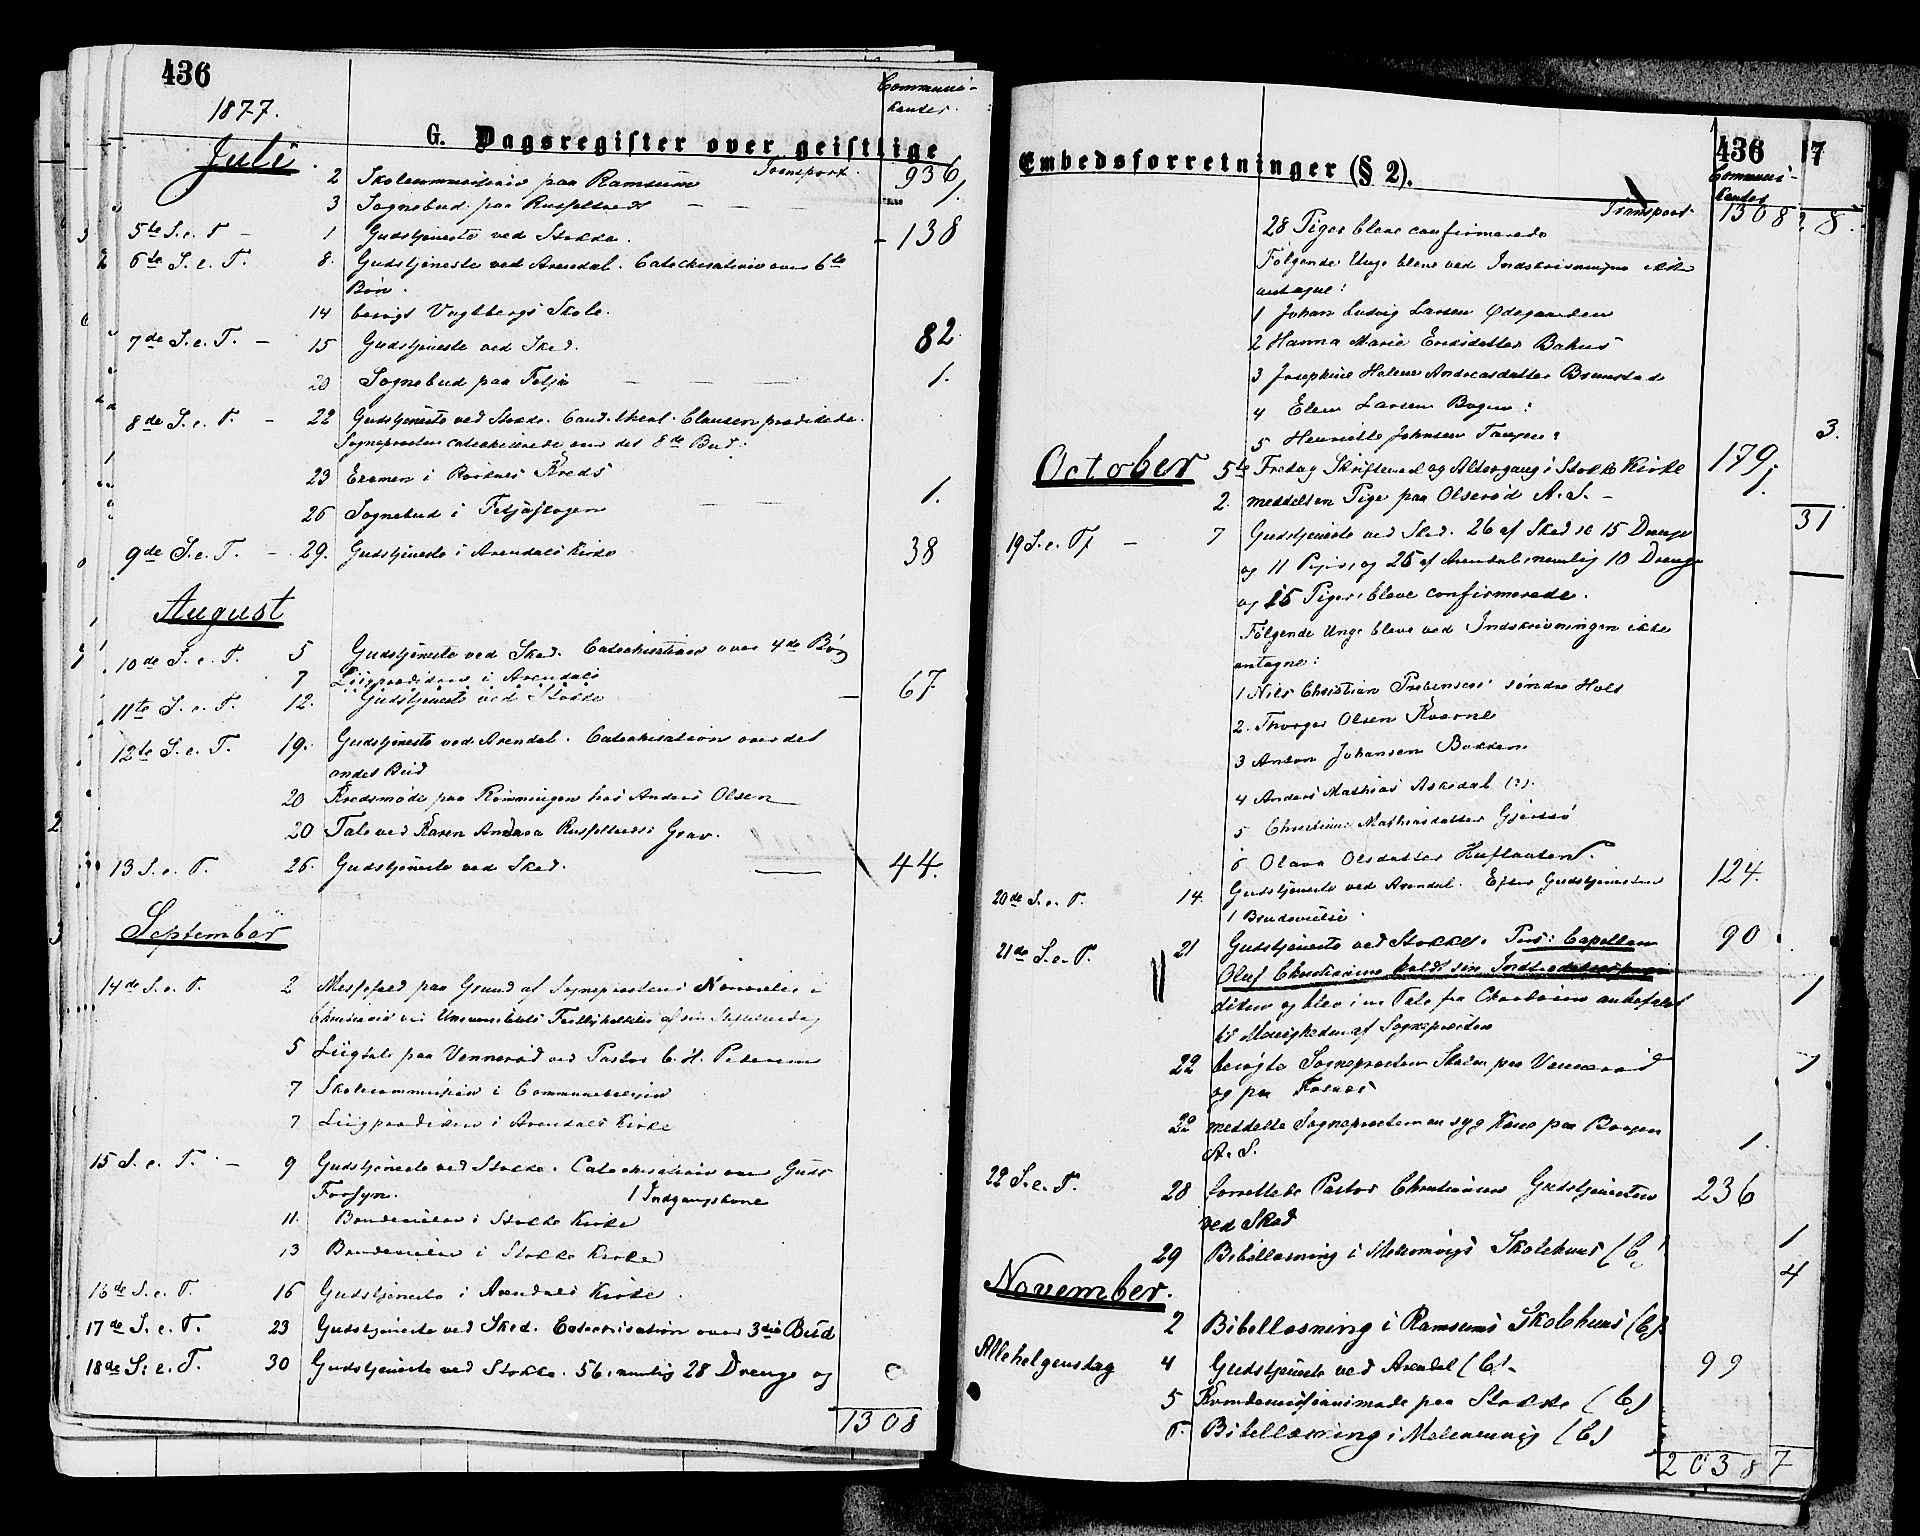 436
1877.
Communi-
kanter.
G. Dagsregister over geistlige
Juli.
2 Skolecommission paa Ramsum Transport. 936
3 Sognebud paa — — — 1.
5te S. e. T. — 1 Gudstjeneste ved Stokke. — 138
6te S. e. T. 8. Gudstjeneste ved Arendal. Catechisation over 6te
Bøn.
14 besøgt Vagtbergs Skole.
7de S. e. T. — 15 Gudstjeneste ved Sked. 82
20 Sognebud paa — — — 1.
8de S. e. T. — 22 Gudstjeneste ved Stokke. Cand. theol. Clausen prædikede.
Sognepræsten catechiserede over det 8de Bud.
23 Examen i Kreds
26 Sognebud i — — 1.
9de S. e. T. — 29. Gudstjeneste i Arendals Kirke 38
August
10de S. e. T. 5 Gudstjeneste ved Sked. Catechisation over 4de Bøn
7 Liigprædiken i Arendals
11te S. e. T. 12. Gudstjeneste ved Stokke — 67
12te S. e. T. 19. Gudstjeneste ved Arendal. Catechisation over det
andet Bud
20 Kredsmøde paa Rømningen hos Anders Olsen
20 Tale ved Karen Andrea Grav.
13 S. e. T. 26. Gudstjeneste ved Sked. — 44.
September
14de S. e. T. 2 Messefald paa Grund af Sognepræstens Nærværelse i
Christiania ved Universitetets
5 Liigtale paa Vennerød ved Pastor C. H. Petersen
7 Skolecommission i
7 Liigprædiken i Arendals Kirke
15 S. e. T. — 9 Gudstjeneste ved Stokke. Catechisation over Guds
Forsyn. 1 Indgangskone
11. Brudevielse i Stokke Kirke
13 Brudevielse i Stokke Kirke
16de S. e. T. 16 Gudstjeneste i Arendals Kirke.
17de S. e. T. 23 Gudstjeneste ved Sked. Catechisation over 3die Bud
18de S. e. T. 30 Gudstjeneste ved Stokke. 56, nemlig 28 Drenge og 0
1308
Embedsforretninger (§ 2).
436 17
Communi-
kanter
Transport 1308 28.
28 Piger bleve confirmerede
Følgende Unge bleve ved Indskrivningen ikke
antagne:
1 Johan Ludvig Larsen Ødegaarden
2 Hanna Marie Bakus
3 Josephine Helene Andreasdatter Brunstad
4 Elen Larsen Bogen:
5 Henriette Johnsen Tangen: 3.
October 5te Fredag Skriftemaal og Altergang i Stokke Kirke 179,
2. meddelsen Pige paa Olserød A. S. — 1.
31
19 S. e. Tf — 7 Gudstjeneste ved Sked. 26 af Sked sc 15 Drenge
og 11 Piger, og 25 af Arendal nemlig 10 Drenge
og 15 Piger, bleve confirmerede.
Følgende Unge bleve ved Indskrivningen ikke
antagne:
1 Nils Christian Prebensen søndre Holt
2. Thorger Olsen Kværne
3 Anton Johansen Bakken
4 Anders Mathias Askedal (?).
5 Christiane Mathiasdatter
6 Olava Olsdatter
20de S. e. T. 14. Gudstjeneste ved Arendal. Efter Gudstjenesten 124.
1 Brudevielse.
21de S. e. T. 21 Gudstjeneste ved Stokke. Pers: Capellan 90
Oluf Christiansen holdt sin Indtrædelsespræ-
diken og blev i en Tale fra Chordøren anbefalet 1
til Menigheden af Sognepræsten
22 besøgte Sognepræsten Skolen paa Vennerød 1
og paa
22 meddelte Sognepræsten en syg Kone paa Bogen
A. S. 1.
22 S. e. T. 28 forrettede Pastor Christiansen Gudstjenesten 236
ved Sked
29 Bibellæsning i Melsomvigs Skolehuus (C) 1
November. 4
2 Bibellæsning i Ramsums Skolehuus (C).
Allehelgensdag 4 Gudstjeneste ved Arendal (C). 99
5 paa Stokke (C)
6. Bibellæsning i Melsomvig (C)
2038 7